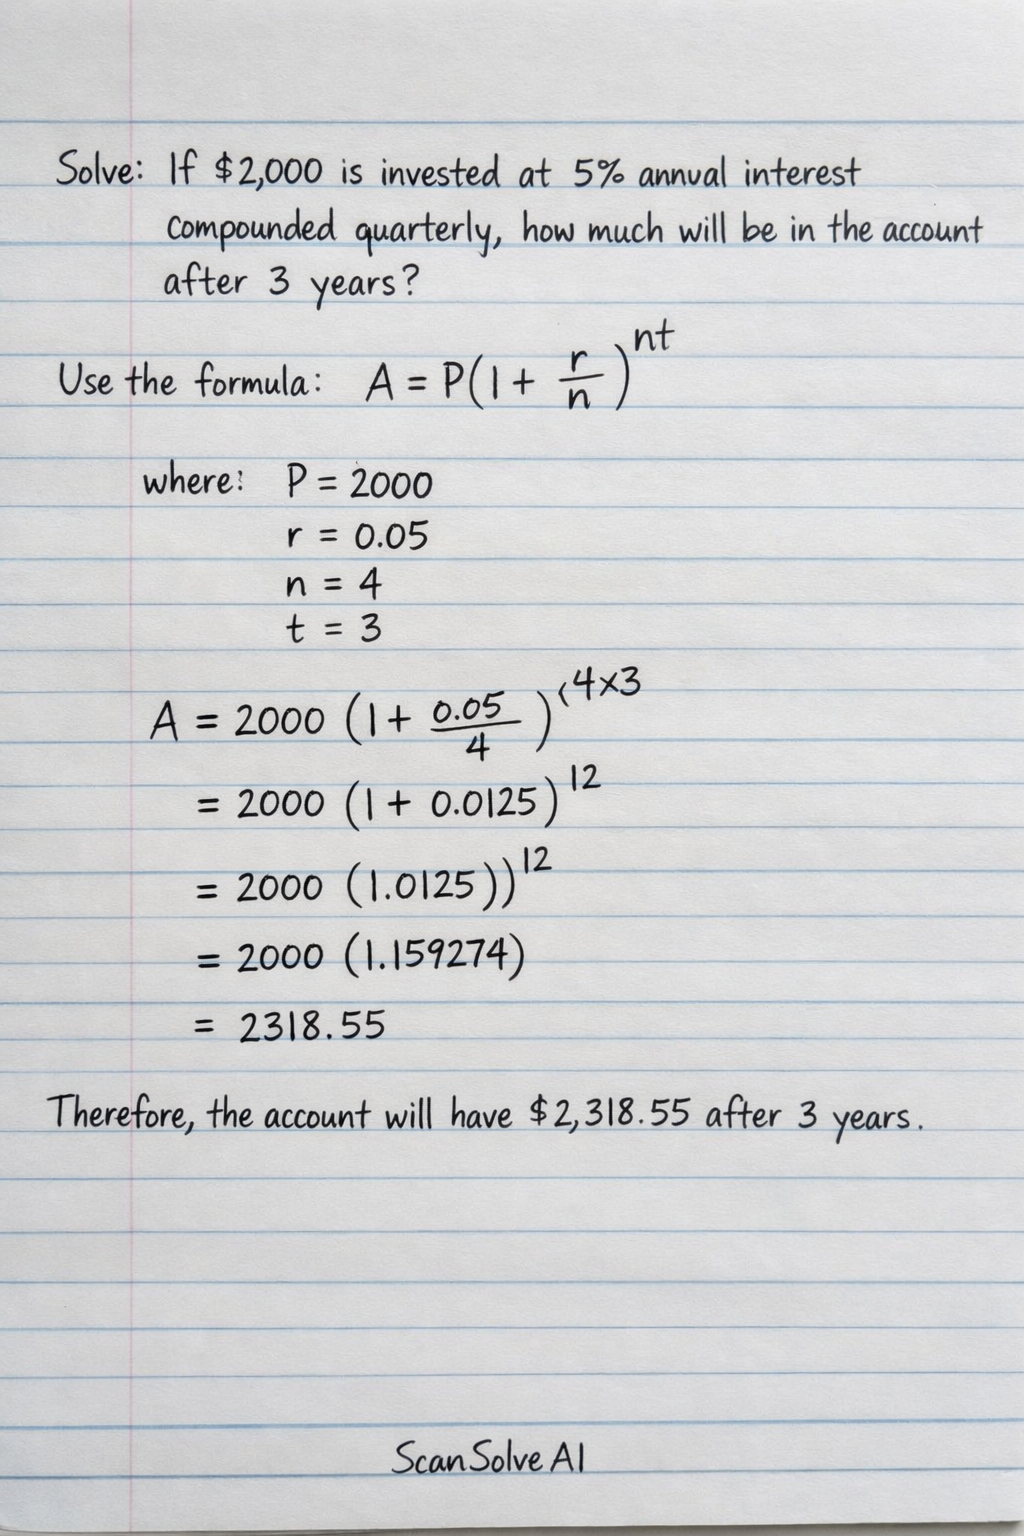 Solve: If $2,000 is invested at 5% annual interest
compounded quarterly, how much will be in the account
after 3 years?
Use the formula: A = P(1 + r/n)^nt
where: P = 2000
r = 0.05
n = 4
t = 3
A = 2000 (1 + 0.05/4)^(4×3
= 2000 (1 + 0.0125)^12
= 2000 (1.0125))^12
= 2000 (1.159274)
= 2318.55
Therefore, the account will have $2,318.55 after 3 years.
ScanSolve AI